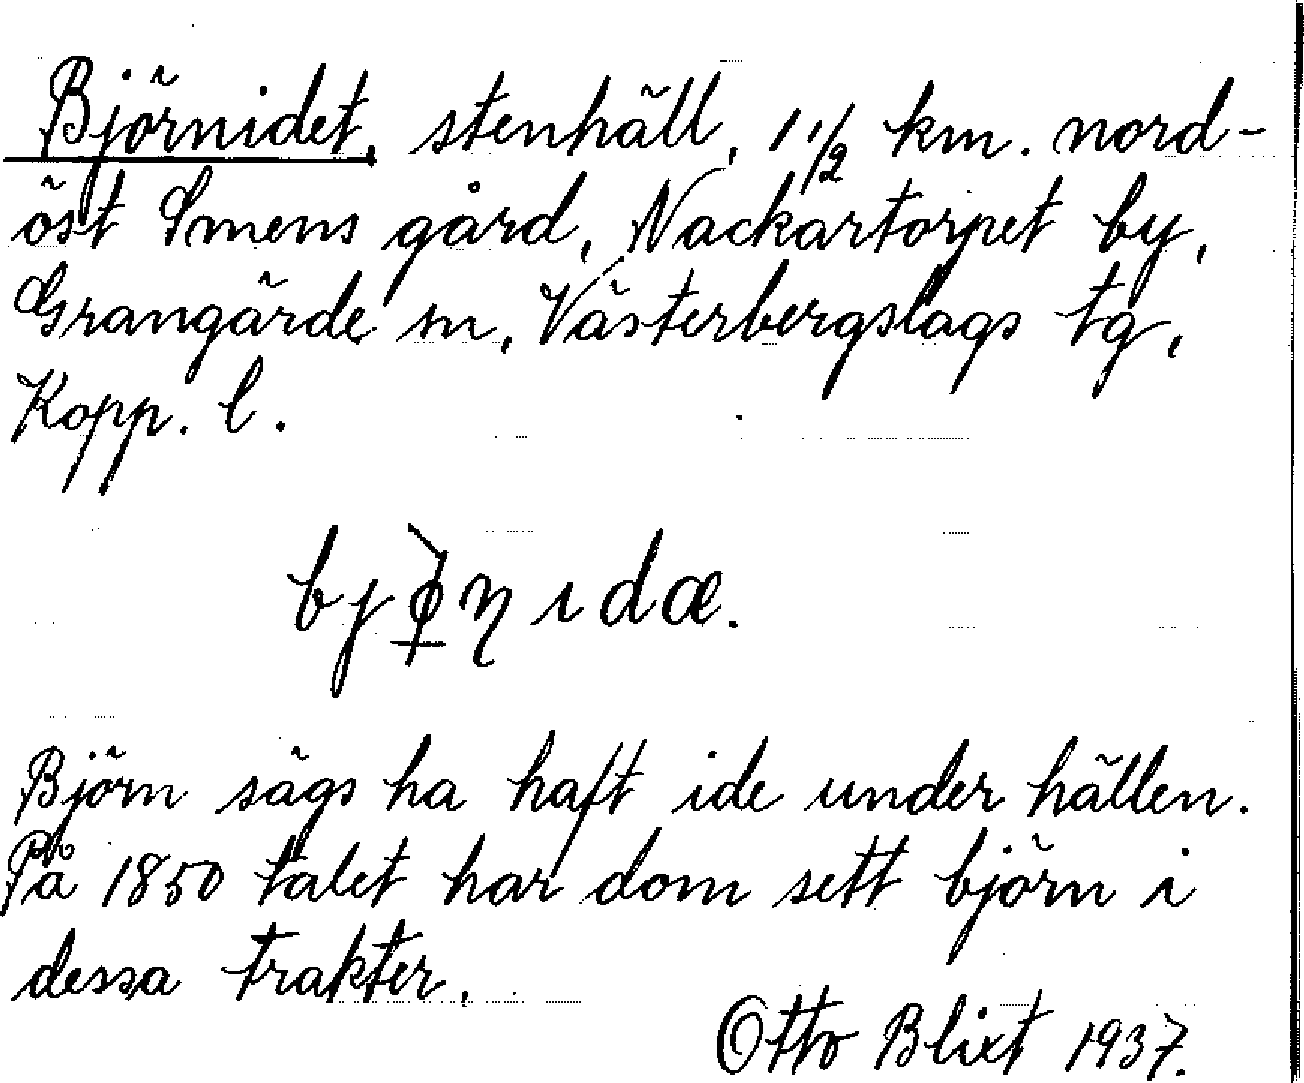 Björnidet, stenhäll, 1 1/2 km. nord-
öst Smens gård, Nackartorpet by,
Grangärde sn, Västerbergslags tg,
Kopp. l.
bjö̀ṇidæ.
Björn sägs ha haft ide under hällen.
På 1850 talet har dom sett björn i
dessa trakter.
Otto Blixt 1937.